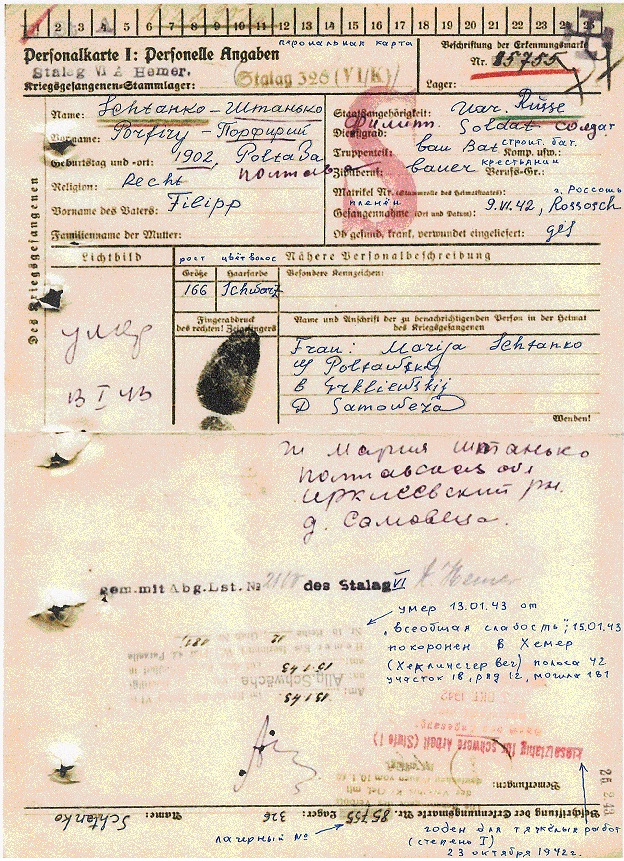 1 2 3 4 5 6 7 8 9 10 11 12 13 14 15 16 17 18 19 20 21 22 23 24 25
персональная карта
Personalkarte I: Personelle Angaben
Beschriftung der Erkennungsmarke
Stalag VI A Hemer.
Stalag 326 (VI/K)
Nr. 85755
Kriegsgefangenen-Stammlager:
Lager:
Des Kriegsgefangenen
Name: Schtanko - Штанько
Vorname: Porfiry - Порфирий
Geburtstag und -ort: 1902, Poltawa
Полтава
Religion: Recht
Vorname des Vaters: Filipp
Familienname der Mutter:
Staatsangehörigkeit: Russe
Dienstgrad: Soldat солдат
Truppenteil: Bau Bat строит. бат. Komp. usw.:
Zivilberuf: Bauer крестьянин Berufs-Gr.:
Matrikel Nr. (Stammrolle des Heimatstaates)
пленён г. Россошь
Gefangennahme (Ort und Datum): 9.VII.42, Rossosch
Ob gesund, krank, verwundet eingeliefert: ges
Lichtbild
рост цвет волос
Nähere Personalbeschreibung
Größe Haarfarbe Besondere Kennzeichen:
166 Schwarz
Fingerabdruck
des rechten! Zeigefingers
Name und Anschrift der zu benachrichtigenden Person in der Heimat
des Kriegsgefangenen
умер
13 I 43
Frau: Marija Schtanko
Poltawskaj
Irkliewskij
D Samoweza
Wenden!
Мария Штанько
Полтавская обл
Иркліевский рн.
д. Самовеца.
gem. mit Abg. Lst. № 2100 des Stalag VI A Hemer
умер 13.01.43 от
"всеобщая слабость"; 15.01.43
похоронен в Хемер
(Хеклингсер вег) полоса 42
участок 18, ряд 12, могила 181
12 181
15.1.43
Allg. Schwäche
13.1.43
OKT 1942
Einsatzfähig für schwere Arbeit (Stufe I)
Bemerkungen:
25.2.43
Beschriftung der Erkennungsmarke Nr. 85755 Lager: 326 Name: Schtanko
лагерный № годен для тяжёлых работ
(степень I)
23 октября 1942г.